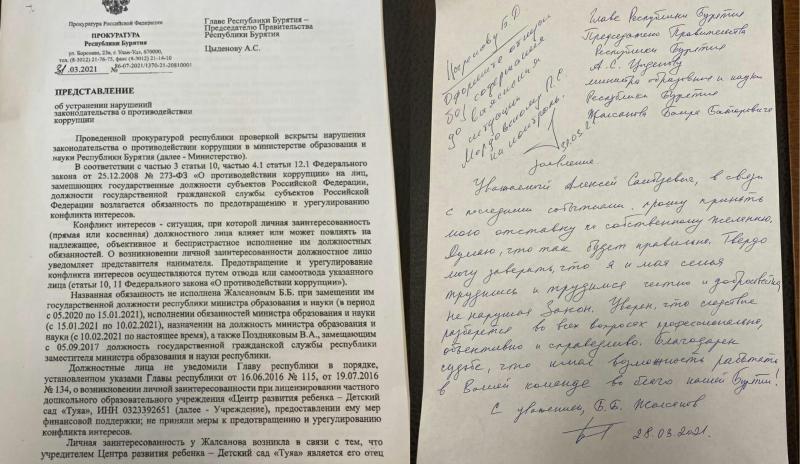 Прокуратура Российской Федерации
ПРОКУРАТУРА
Республики Бурятия
ул. Борсоева, 23а, г. Улан-Удэ, 670000,
тел. (8-3012) 21-76-75, факс (8-3012) 21-14-10
31.03.2021 № 86-07-2021/1370-21-20810001
Главе Республики Бурятия –
Председателю Правительства
Республики Бурятия
Цыденову А.С.
ПРЕДСТАВЛЕНИЕ
об устранении нарушений
законодательства о противодействии
коррупции
Проведенной прокуратурой республики проверкой вскрыты нарушения
законодательства о противодействии коррупции в министерстве образования и
науки Республики Бурятия (далее - Министерство).
В соответствии с частью 3 статьи 10, частью 4.1 статьи 12.1 Федерального
закона от 25.12.2008 № 273-ФЗ «О противодействии коррупции» на лиц,
замещающих государственные должности субъектов Российской Федерации,
должности государственной гражданской службы субъектов Российской
Федерации возлагается обязанность по предотвращению и урегулированию
конфликта интересов.
Конфликт интересов - ситуация, при которой личная заинтересованность
(прямая или косвенная) должностного лица влияет или может повлиять на
надлежащее, объективное и беспристрастное исполнение им должностных
обязанностей. О возникновении личной заинтересованности должностное лицо
уведомляет представителя нанимателя. Предотвращение и урегулирование
конфликта интересов осуществляются путем отвода или самоотвода указанного
лица (статьи 10, 11 Федерального закона «О противодействии коррупции»).
Названная обязанность не исполнена Жалсановым Б.Б. при замещении им
государственной должности республики министра образования и науки (в период
с 05.2020 по 15.01.2021), исполнении обязанностей министра образования и науки
(с 15.01.2021 по 10.02.2021), назначении на должность министра образования и
науки (с 10.02.2021 по настоящее время), а также Поздняковым В.А., замещающим
с 05.09.2017 должность государственной гражданской службы республики
заместителя министра образования и науки республики.
Должностные лица не уведомили Главу республики в порядке,
установленном указами Главы республики от 16.06.2016 № 115, от 19.07.2016
№ 134, о возникновении личной заинтересованности при лицензировании частного
дошкольного образовательного учреждения «Центр развития ребенка – Детский
сад «Туяа», ИНН 0323392651 (далее - Учреждение), предоставлении ему мер
финансовой поддержки; не приняли меры к предотвращению и урегулированию
конфликта интересов.
Личная заинтересованность у Жалсанова возникла в связи с тем, что
учредителем Центра развития ребенка – Детский сад «Туяа» является его отец
Цыренову Б.Д.
Оформите отпуск
без содержания
до выяснения
ситуации.
Мордовскому П.С.
на контроль.
Главе Республики Бурятия
Председателю Правительства
Республики Бурятия
А.С. Цыденову
министра образования и науки
Республики Бурятия
Жалсанова Баира Баторовича
заявление.
Уважаемый Алексей Самбуевич, в связи
с последними событиями прошу принять
мою отставку по собственному желанию.
Думаю, что так будет правильно. Твердо
могу заверить, что я и моя семья
трудились и трудимся честно и добросовестно,
не нарушая Закон. Уверен, что следствие
разберется во всех вопросах профессионально,
объективно и справедливо. Благодарен
судьбе, что имел возможность работать
в Вашей команде во благо нашей Бурятии!
С уважением, Б.Б. Жалсанов
28.03.2021.